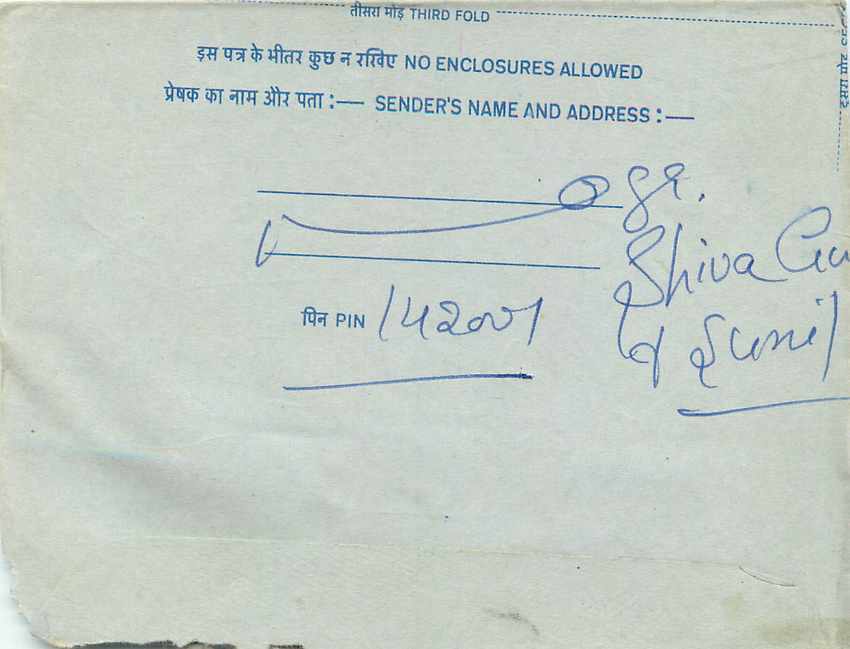 तीसरा मोड़ THIRD FOLD
इस पत्र के भीतर कुछ न रखिए NO ENCLOSURES ALLOWED
प्रेषक का नाम और पता :— SENDER'S NAME AND ADDRESS :—
Shiva
& Sunil
पिन PIN 142001